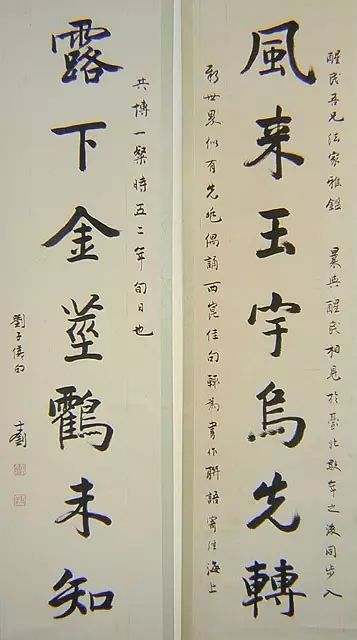 風来玉宇烏先轉
醒民吾兄法家雅鑑 曩與醒民相見於臺北數年之後同步入
新世界似有先兆偶誦西崑佳句輒為書作聯語寄往海上
露下金莖鶴未知
共博一粲時五二年旬日也
劉子